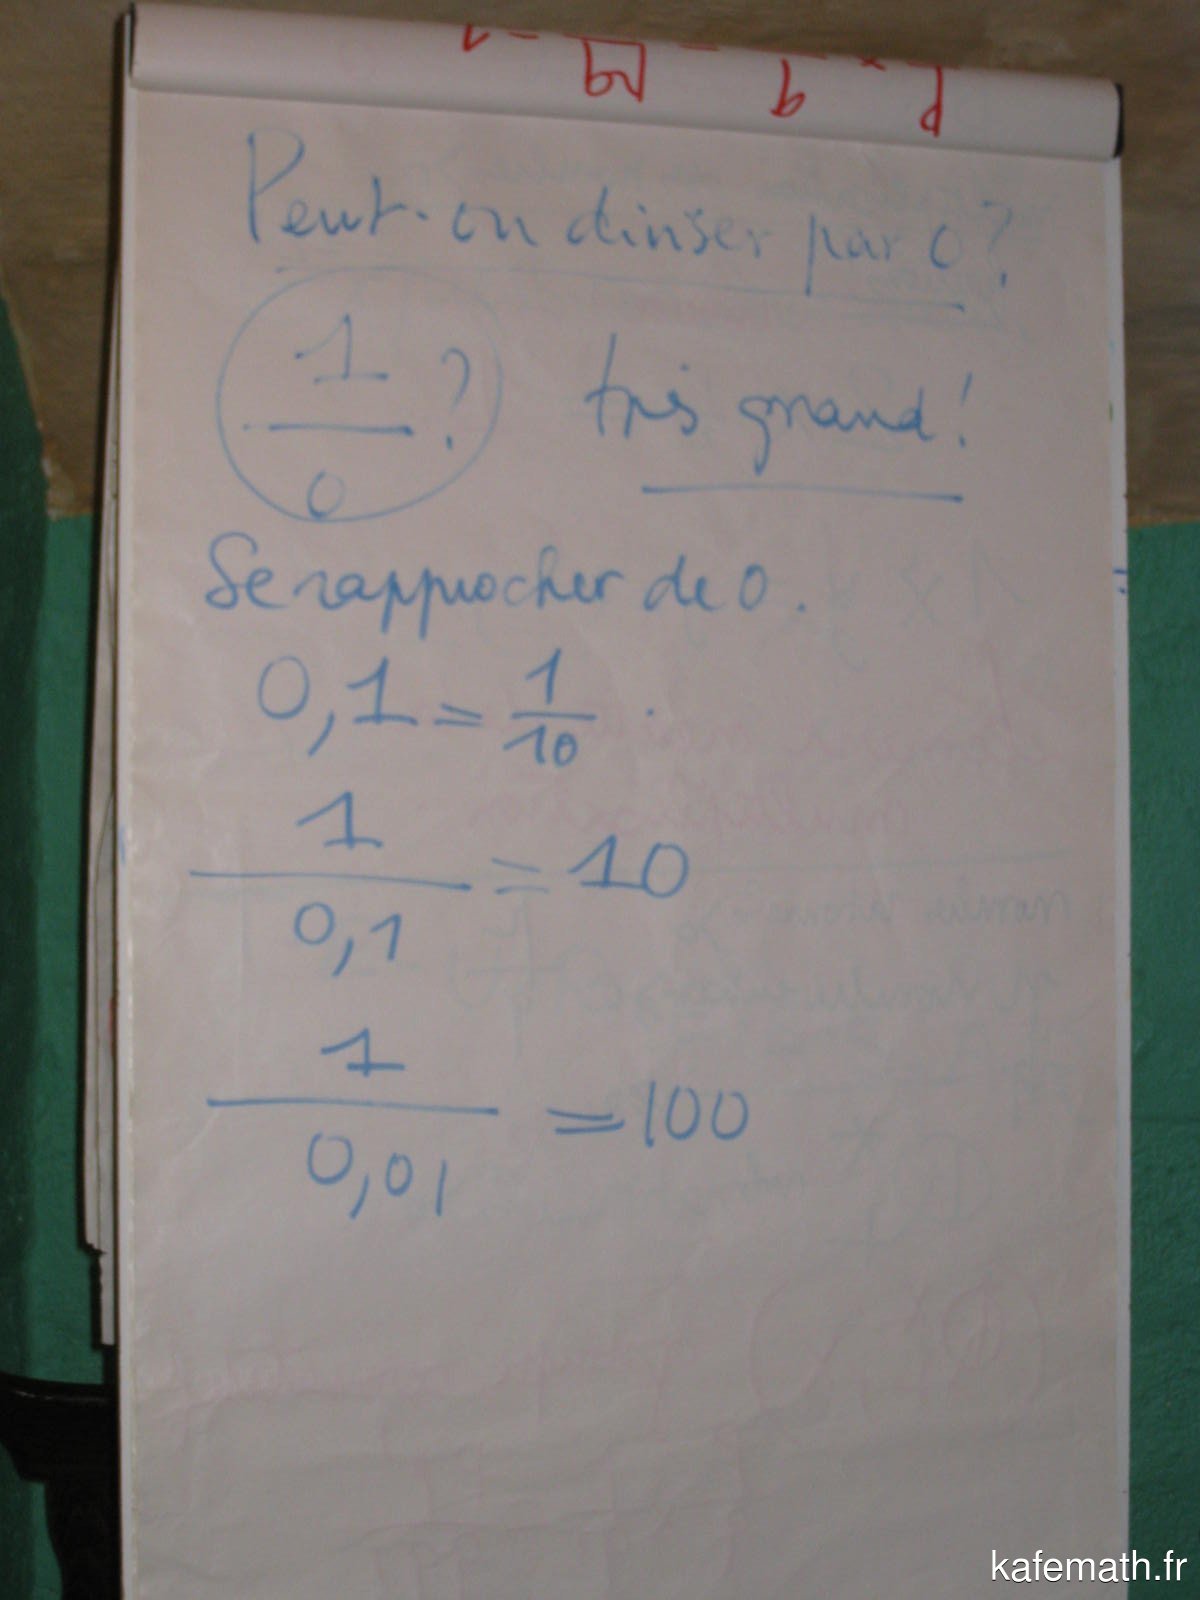 Peut-on diviser par 0?
1/0 ? très grand!
Se rapprocher de 0.
0,1 = 1/10
1/0,1 = 10
1/0,01 = 100
kafemath.fr